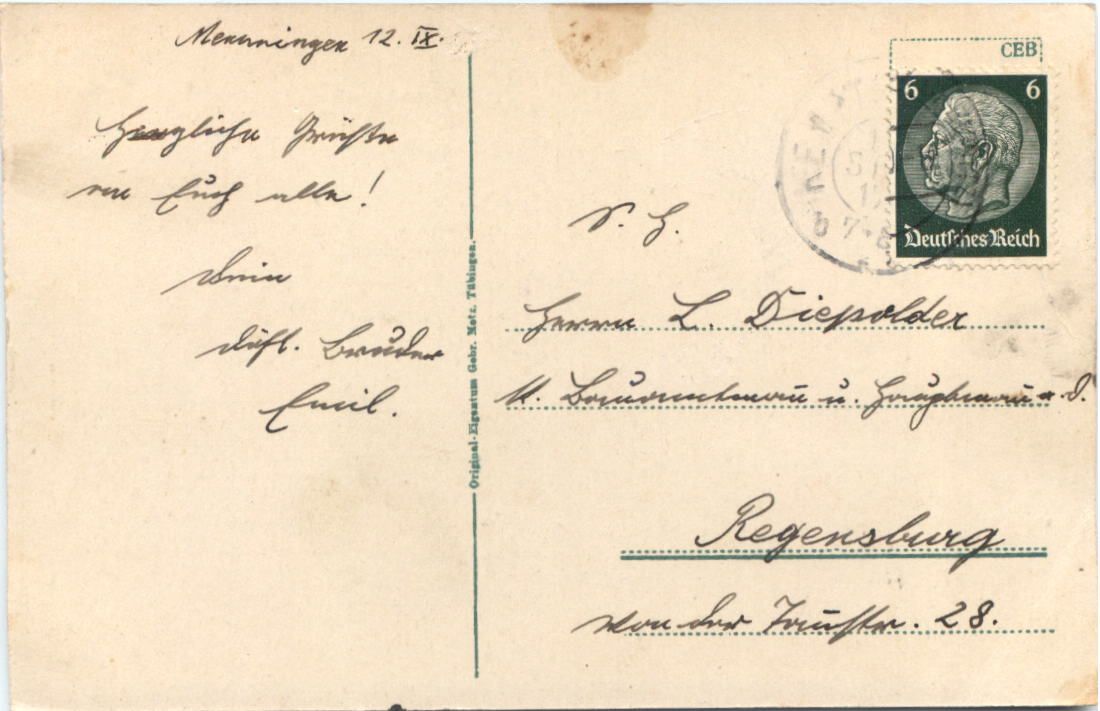 Memmingen 12. IX.
Herzliche Grüße
an Euch alle!
Dein
Bruder
Emil.
Original-Eigentum Gebr. Metz, Tübingen.
CEB
6 6
Deutsches Reich
S. H.
Herrn L. Diepolder
Bauamtmann u. Hauptmann a. D.
Regensburg
Von der Tannstr. 28.